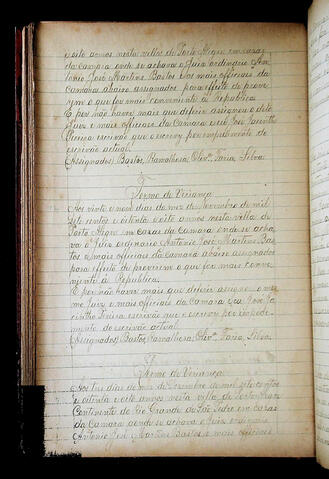 e oito annos nesta villa de Porto Alegre em casas
da Camara onde se achava o Juiz ordinario An-
tonio José Martins Bastos e os mais officiaes da
Camara abaixo assignados para effeito de prove-
rem o que for mais conveniente à Republica
E por não haver mais que deferir assignou o dito
Juiz e mais officiaes da Camara e eu José Jacintho
Pereira escrivão que o escrevy por impedimento do
escrivão actual.
(Assignados) Bastos, Ramalhosa, Olivª. Faria, Silva.
Termo de Veriança
Aos vinte e nove dias do mez de Novembro de mil
sete centos e oitenta e oito annos nesta villa de
Porto Alegre em casas da Camara onde se acha-
va o Juiz ordinario Antonio José Martins Bas-
tos e mais officiaes da Camara abaixo assignados
para effeito de proverem o que for mais conve-
niente à Republica.
E por não haver mais que deferir assignou o mes-
mo Juiz e mais officiaes da Camara e eu José Ja-
cintho Pereira escrivão que o escrevy por impedi-
mento do escrivão actual.
(Assignados) Bastos, Ramalhosa, Olivª. Faria, Silva.
Termo de Veriança
Aos tres dias do mez de Dezembro de mil sete centos
e oitenta e oito annos nesta villa de Porto Alegre
Continente do Rio Grande de São Pedro em casas
da Camara aonde se achava o Juiz ordinario
Antonio José Martins Bastos e mais officiaes